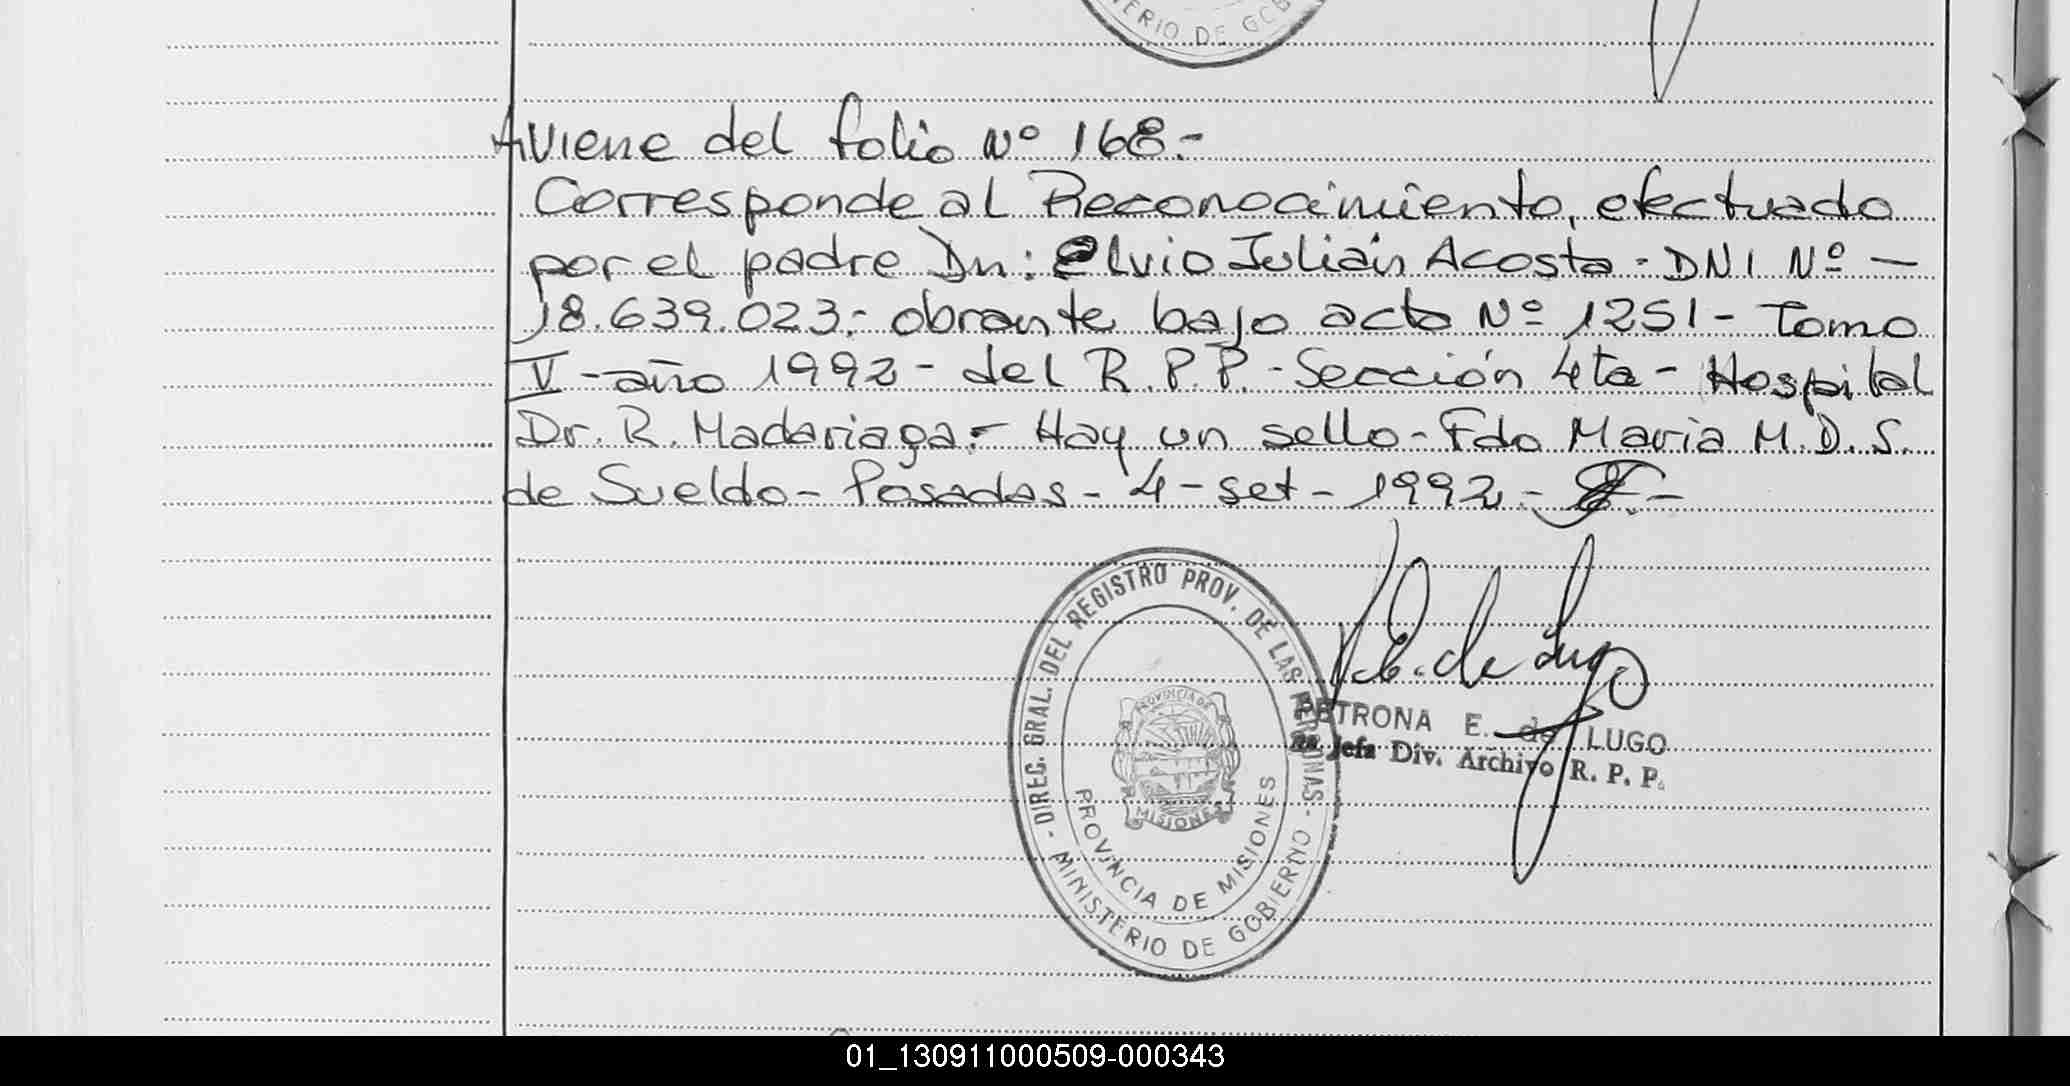 TERIO DE GOB
AViene del folio Nº 168.-
Corresponde al Reconocimiento, efectuado
por el padre Dn: Elvio Julián Acosta - DNI Nº —
18.639.023.- obrante bajo acta Nº 1251 - Tomo
V - año 1992 - del R.P.P. - Sección 4ta - Hospital
Dr. R. Madariaga.- Hay un sello - Fdo Maria M.D.S.
de Sueldo - Posadas - 4 - set - 1992.-
- DIREC. GRAL. DEL REGISTRO PROV. DE LAS PERSONAS -
PROVINCIA DE
MISIONES
PROVINCIA DE MISIONES
MINISTERIO DE GOBIERNO
P.E. de Lugo
PETRONA E. de LUGO
Jefa Div. Archivo R. P. P.
01_130911000509-000343